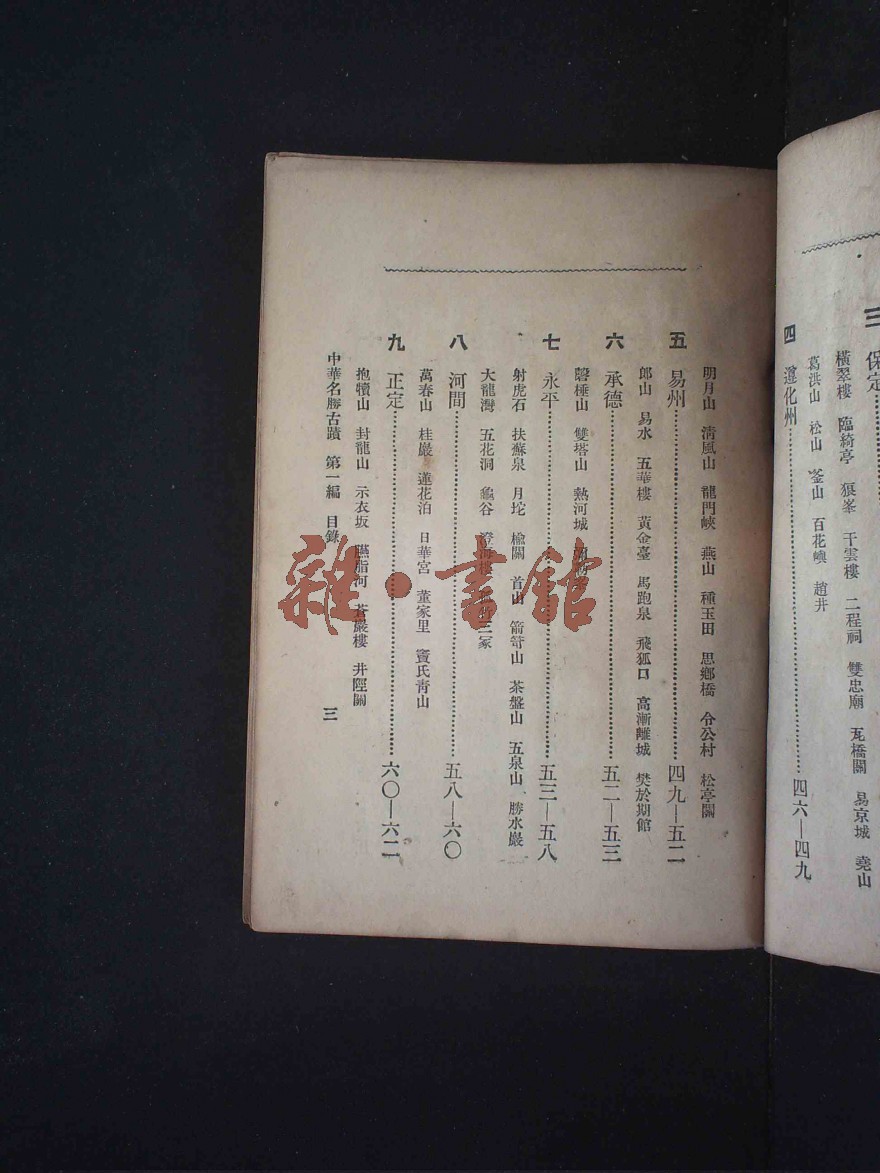 三 保定
橫翠樓 臨綺亭 狼峯 干雲樓 二程祠 雙忠廟 瓦橋關 易京城 堯山
葛洪山 松山 釜山 百花嶼 趙井
四 遵化州………四六—四九
明月山 淸風山 龍門峽 燕山 種玉田 思鄉橋 令公村 松亭關
五 易州………四九—五二
郎山 易水 五華樓 黃金臺 馬跑泉 飛狐口 高漸離城 樊於期館
六 承德………五二—五三
磬棰山 雙塔山 熱河城
七 永平………五三—五八
射虎石 扶蘇泉 月坨 楡關 首山 箭筈山 茶盤山 五泉山 勝水巖
大龍灣 五花洞 龜谷 澄海樓 三冢
八 河間………五八—六〇
萬春山 桂巖 蓮花泊 日華宮 董家里 竇氏靑山
九 正定………六〇—六二
抱犢山 封龍山 示衣坂 臙脂河 蒼巖樓 井陘關
中華名勝古蹟 第一編 目錄 三
雜·書館